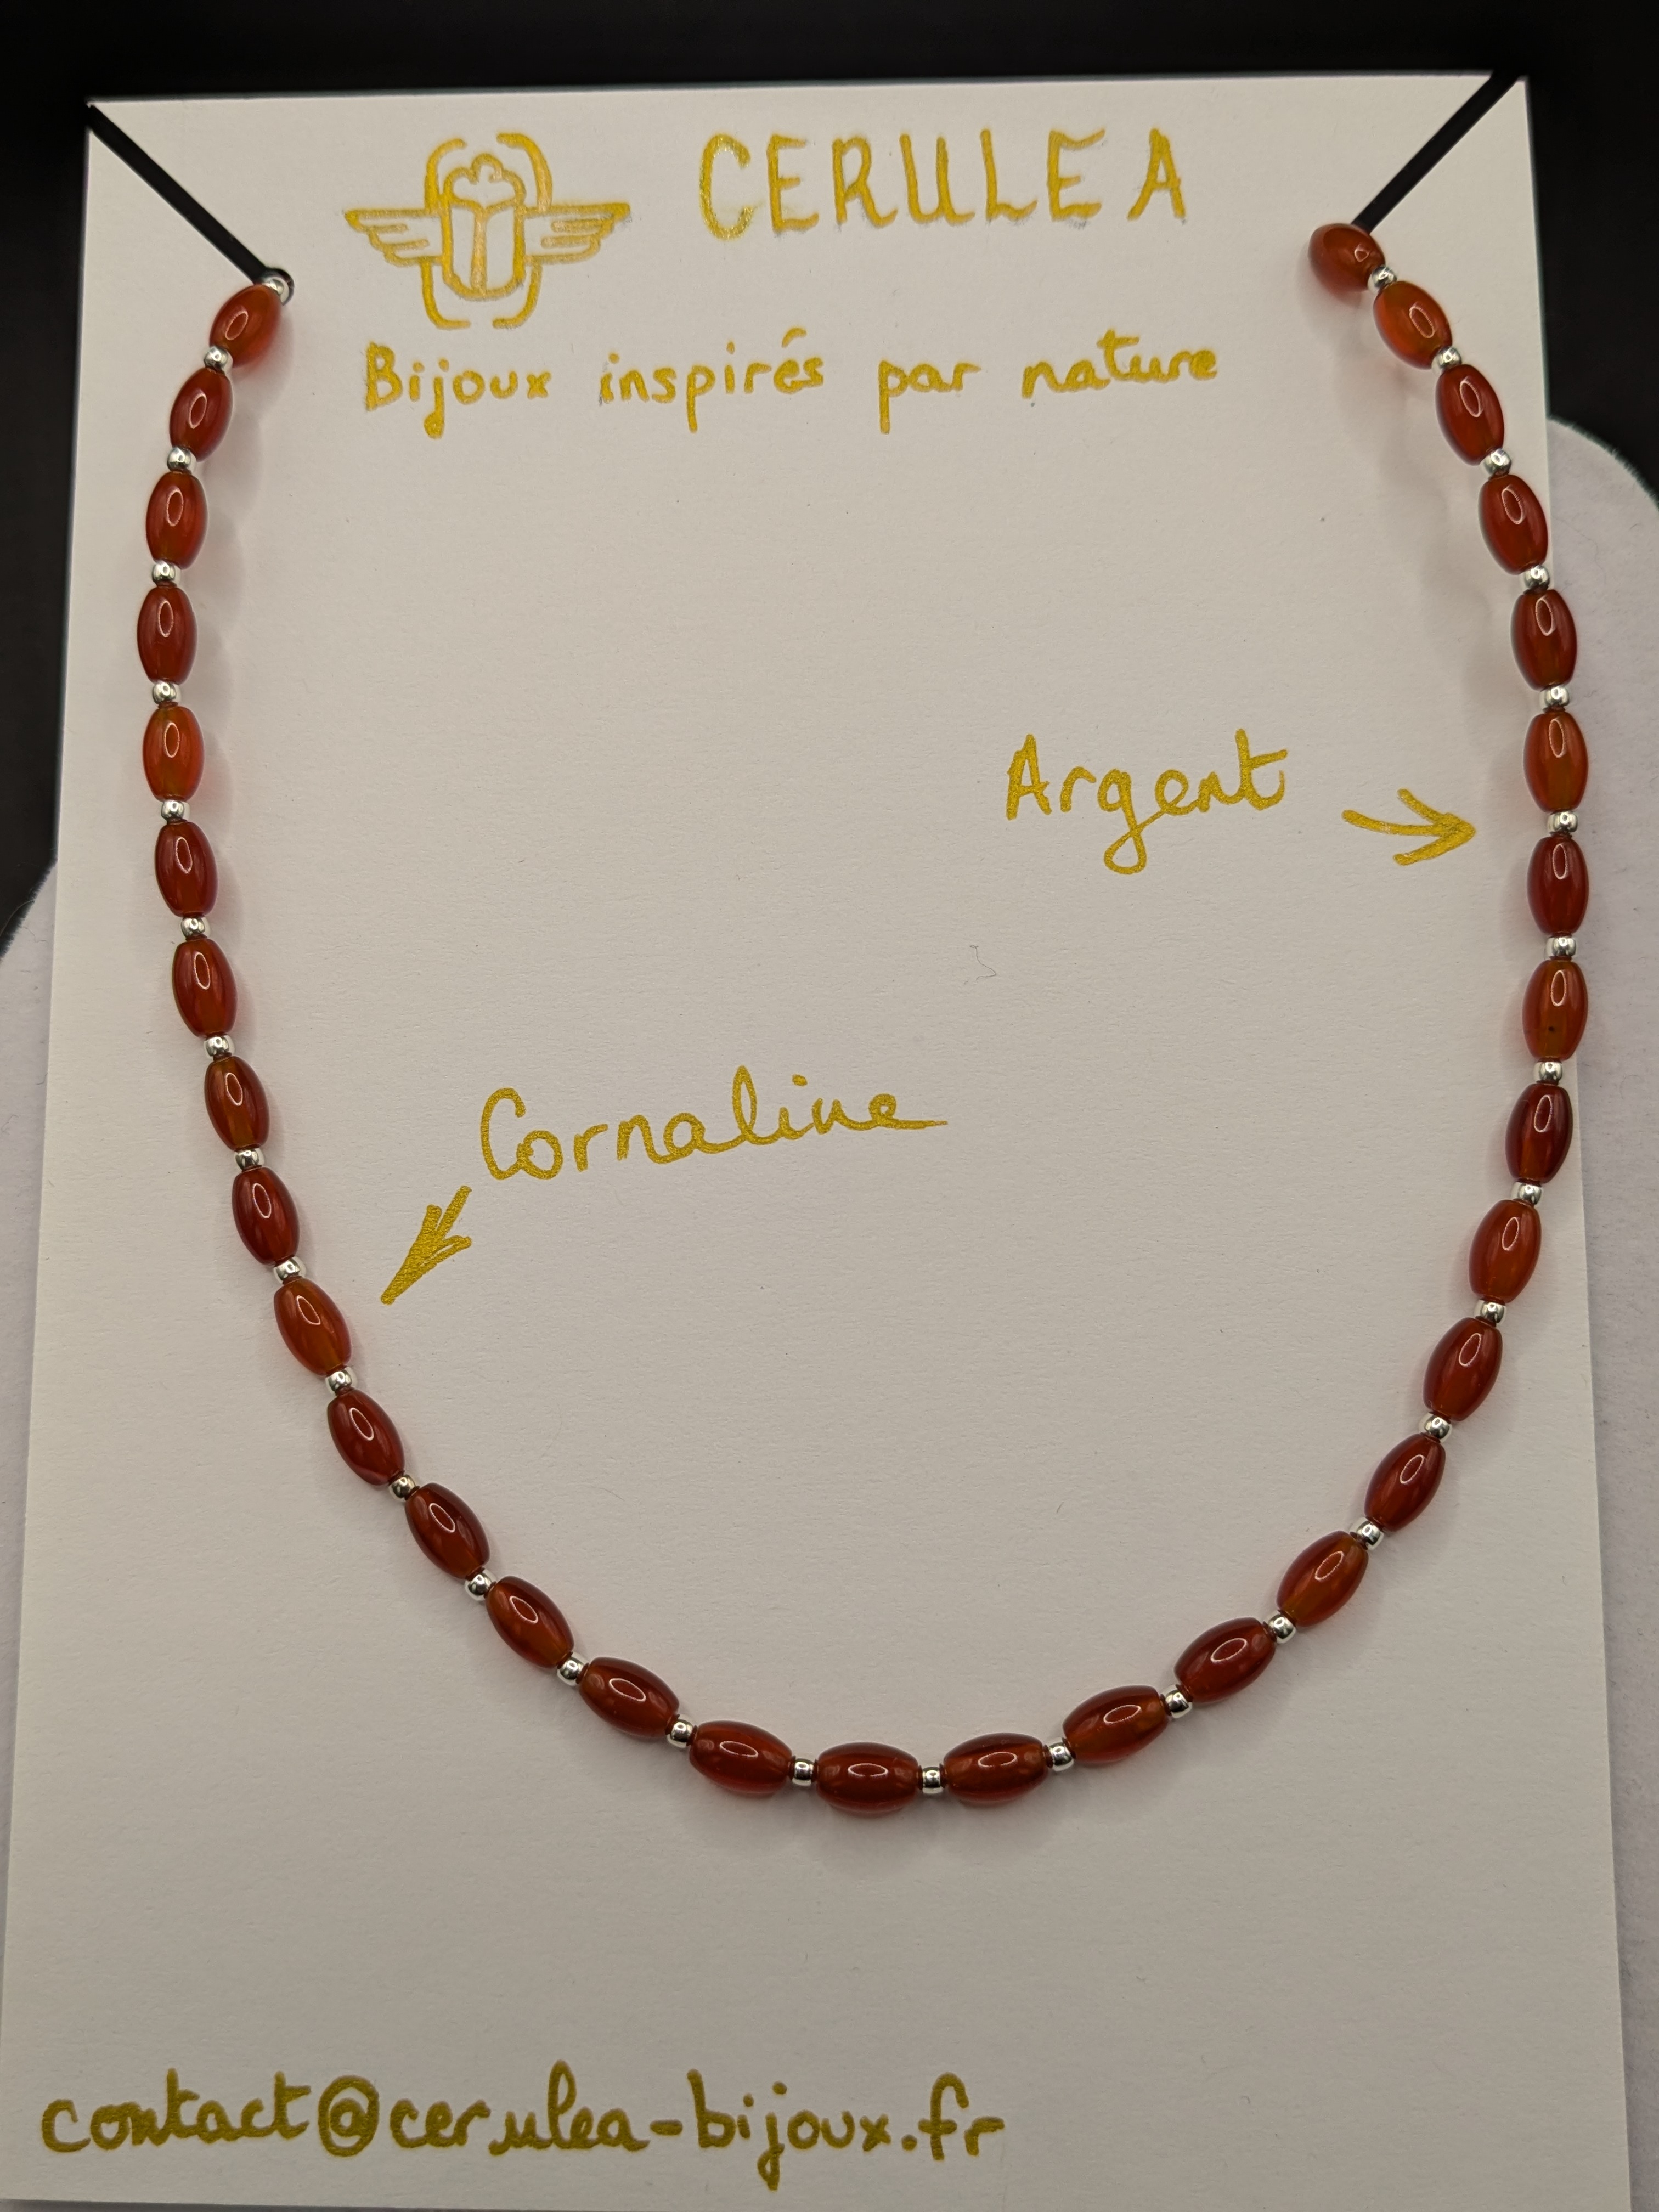 CERULEA
Bijoux inspirés par nature
Argent
Cornaline
contact@cerulea-bijoux.fr